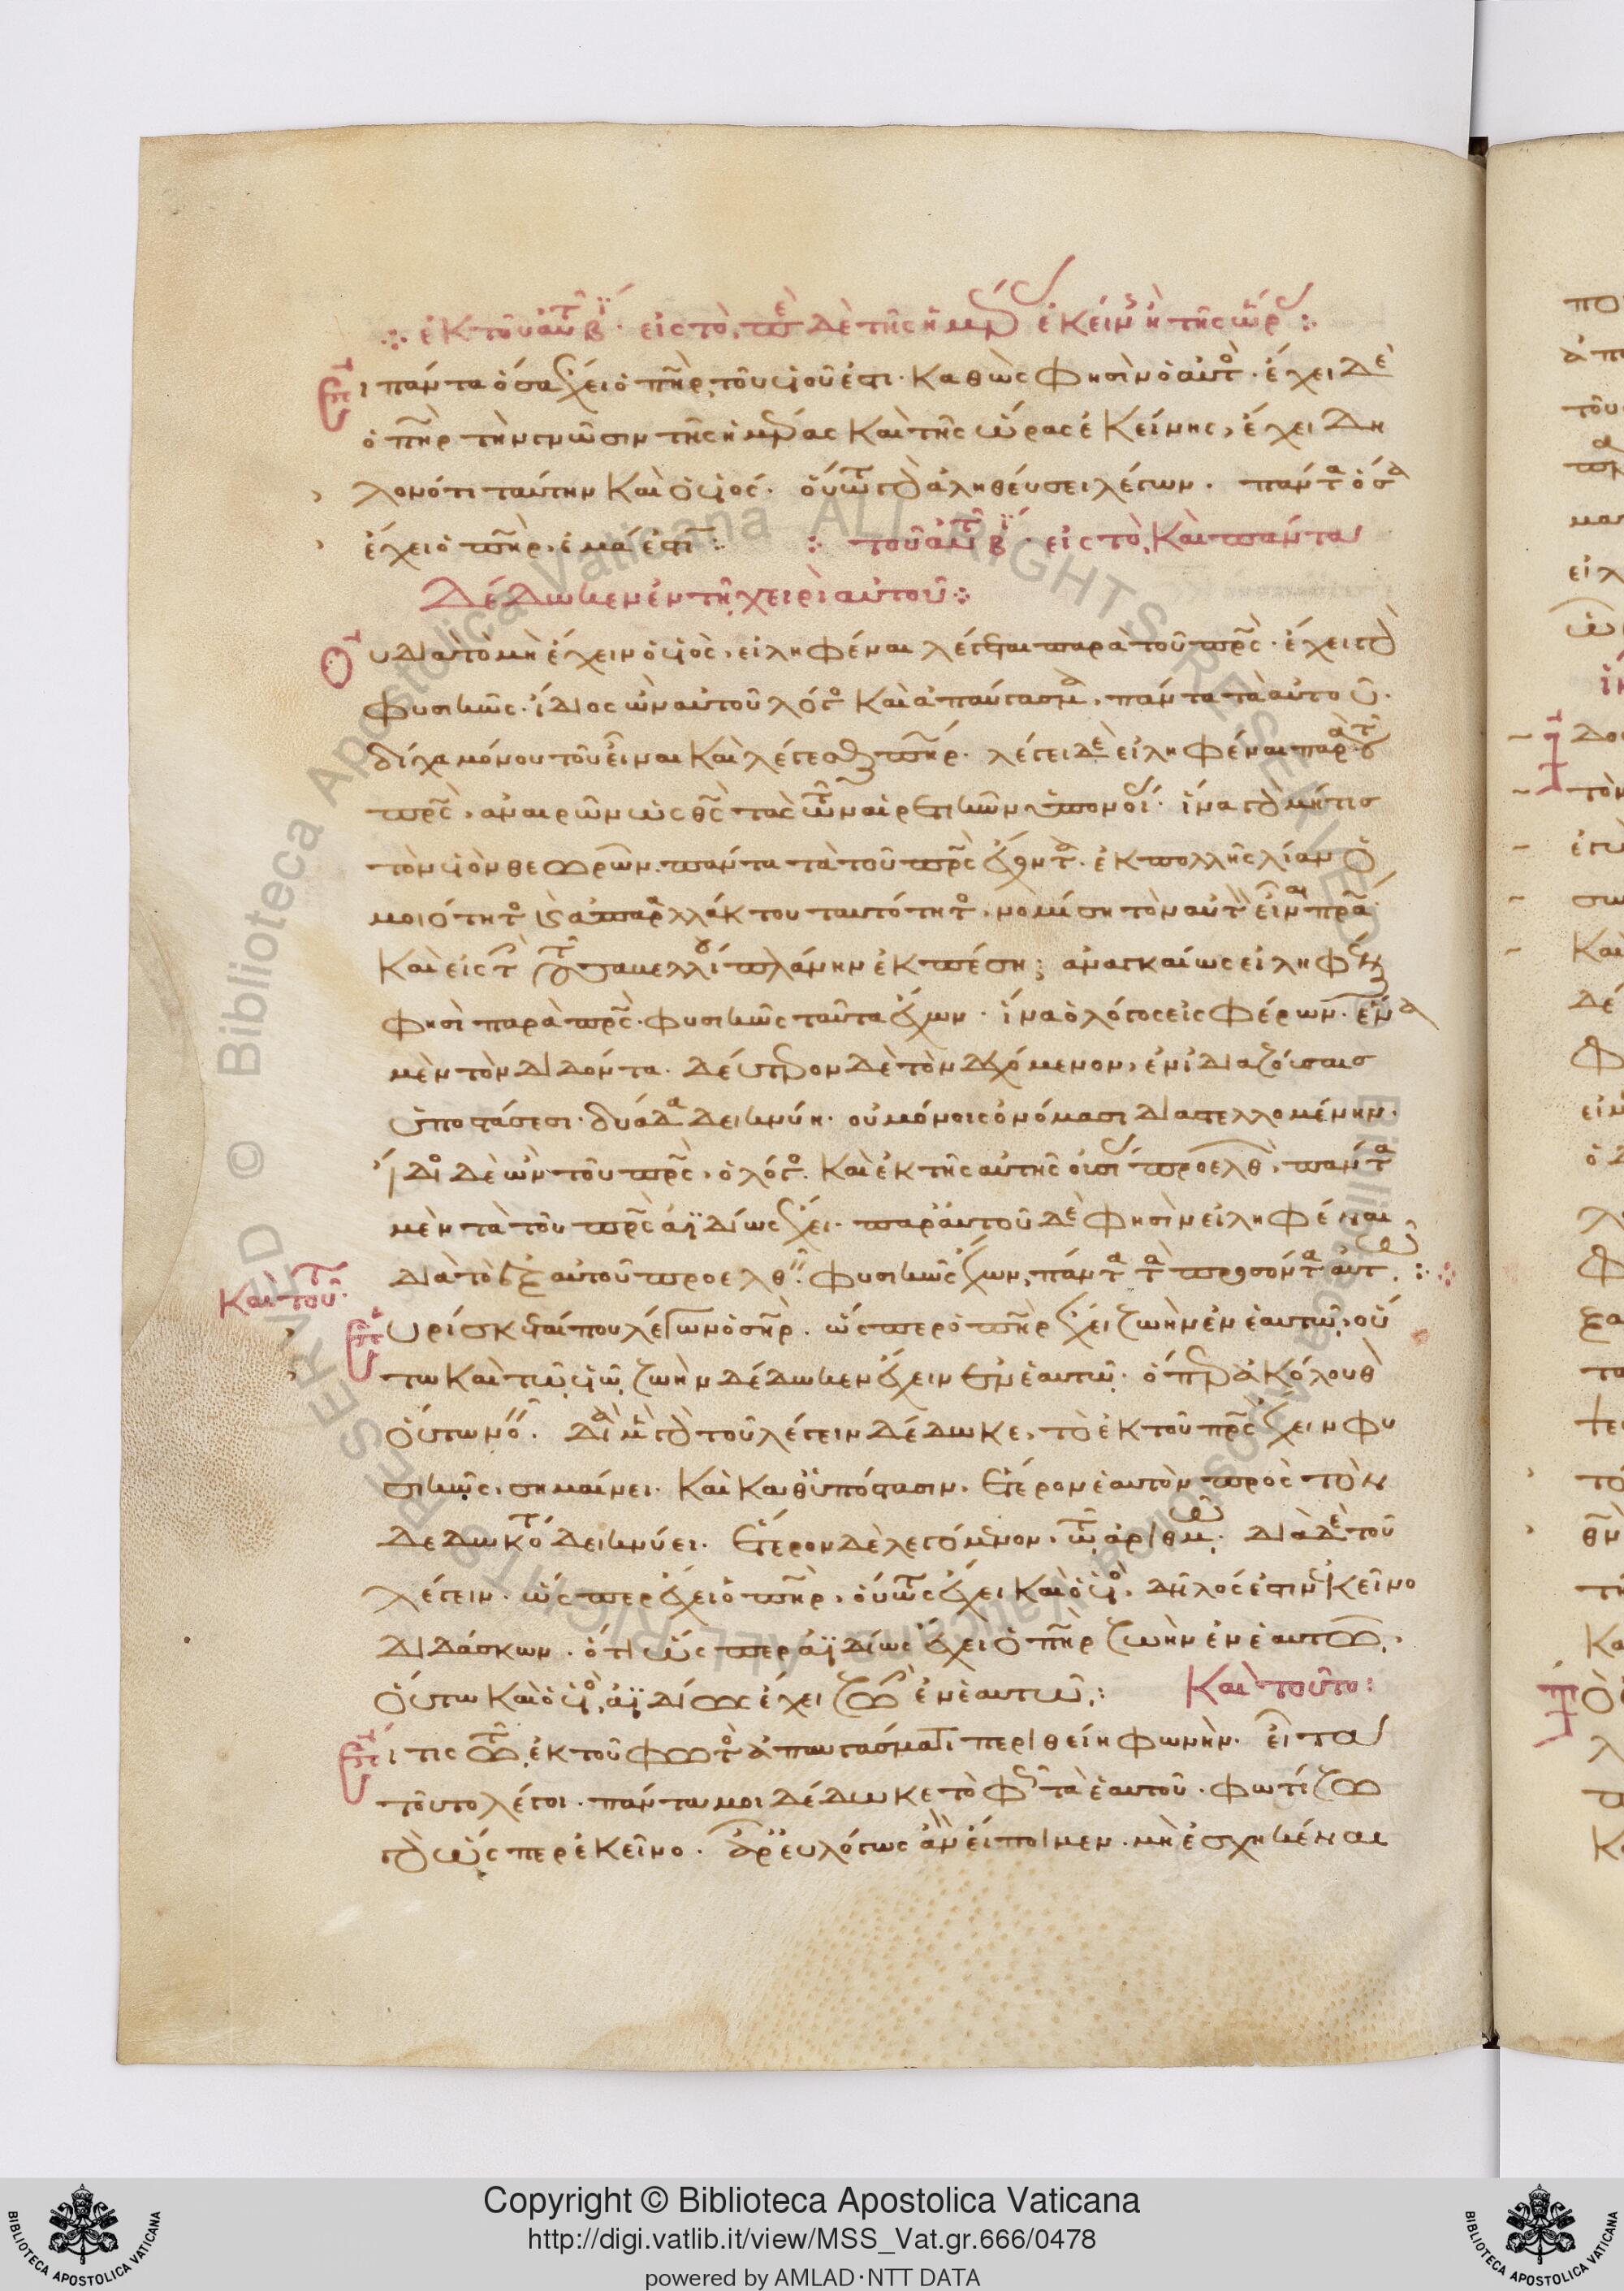 ἐκ τοῦ αὐτοῦ βι· εἰς τὸ, περὶ δὲ τῆς ἡμέρας ἐκείνης ἢ τῆς ὥρας:
Εἰ πάντα ὅσα ἔχει ὁ πηρ, τοῦ υἱοῦ ἐστι· καθώς φησιν ὁ αὐτός· ἔχει δὲ
ὁ πηρ τὴν γνῶσιν τῆς ἡμέρας καὶ τῆς ὥρας ἐκείνης, ἔχει δη
λονότι ταύτην καὶ ὁ υἱός· οὕτω γὰρ ἀληθεύσει λέγων· πάντα ὅσα
ἔχει ὁ πηρ, ἐμά ἐστι: τοῦ αὐτοῦ βι· εἰς τὸ, καὶ πάντα
δέδωκεν ἐν τῇ χειρὶ αὐτοῦ:
Οὐ διὰ τὸ μὴ ἔχειν ὁ υἱὸς, εἰληφέναι λέγεται παρὰ τοῦ πρς· ἔχει γὰρ
φυσικῶς· ἴδιος ὢν αὐτοῦ λόγος καὶ ἀπαύγασμα, πάντα τὰ αὐτοῦ·
δίχα μόνου τοῦ εἶναι καὶ λέγεσθαι πηρ· λέγει δὲ εἰληφέναι παρὰ τοῦ
πρς, ἀναιρῶν ὡς θς τὰς τῶν αἱρετικῶν ὑπονοίας· ἵνα γὰρ μή τις
τὸν υἱὸν θεωρῶν πάντα τὰ τοῦ πρς ἔχοντα· ἐκ πολλῆς λίαν ὁ
μοιότητος καὶ ἀπαραλλάκτου ταυτότητος, νομίση τὸν αὐτὸν εἶναι πρα·
καὶ εἰς τὴν τοῦ σαβελλίου πλάνην ἐκπέση; ἀναγκαίως εἰληφέναι
φησὶ παρὰ πρς· φυσικῶς ταῦτα ἔχων· ἵνα ὁ λόγος εἰσφέρων ἕνα
μὲν τὸν διδόντα· δεύτερον δὲ τὸν δεχόμενον, ἐν ἰδιαζούσαις
ὑποστάσεσι· δυάδα δεικνύη· οὐ μόνοις ὀνόμασι διαστελλομένην·
ἴδιος δὲ ὢν τοῦ πρς, ὁ λόγος· καὶ ἐκ τῆς αὐτῆς οὐσίας προελθὼν, πάντα
μὲν τὰ τοῦ πρς ἀϊδίως ἔχει· παρ' αὐτοῦ δὲ φησὶν εἰληφέναι
διὰ τὸ ἐξ αὐτοῦ προελθεῖν· φυσικῶς ἔχων, πάντα τὰ προσόντα αὐτῷ:
Καὶ τοῦτο·
Εὑρίσκεται που λέγων ὁ σηρ· ὥσπερ ὁ πηρ ἔχει ζωὴν ἐν ἑαυτῷ, οὕ
τω καὶ τῷ υἱῷ ζωὴν δέδωκεν ἔχειν ἐν ἑαυτῷ· ὅπερ ἀκόλουθον
οὕτω νοεῖν· διὰ μὲν γὰρ τοῦ λέγειν δέδωκε, τὸ ἐκ τοῦ πρς ἔχειν φυ
σικῶς, σημαίνει· καὶ καθ' ὑπόστασιν, ἕτερον ἑαυτὸν πρὸς τὸν
δεδωκότα δεικνύει· ἕτερον δὲ λεγόμενον, τῷ ἀριθμῷ· διὰ δὲ τοῦ
λέγειν· ὥσπερ ἔχει ὁ πηρ, οὕτως ἔχει καὶ ὁ υἱὸς, δῆλός ἐστιν ἐκεῖνο
διδάσκων· ὅτι ὥσπερ ἀϊδίως ἔχει ὁ πηρ ζωὴν ἐν ἑαυτῷ,
οὕτω καὶ ὁ υἱὸς, ἀϊδίως ἔχει ζωὴν ἐν ἑαυτῷ: Καὶ τοῦτο:
Εἴ τις τῷ ἐκ τοῦ φωτὸς ἀπαυγάσματι περιθείη φωνὴν· εἶτα
τοῦτο λέγοι· πάντα μοι δέδωκε τὸ φῶς τὰ ἑαυτοῦ· φωτίζω
γὰρ ὥσπερ ἐκεῖνο· ἆρ' εὐλόγως ἂν εἴποιμεν· μὴ ἐσχηκέναι